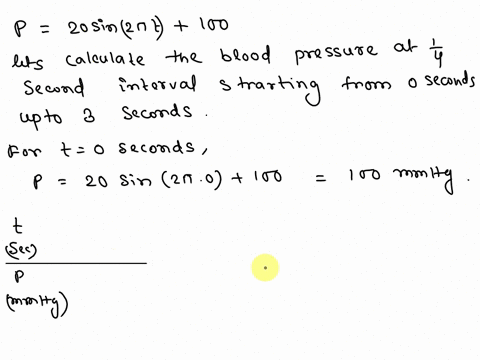 P = 20 sin(2πt) + 100
lets calculate the blood pressure at 1/4
second interval strarting from 0 seconds
upto 3 seconds.
For t=0 seconds,
P = 20 sin(2π.0) + 100 = 100 mmHg.
t
(sec)
P
(mmHg)